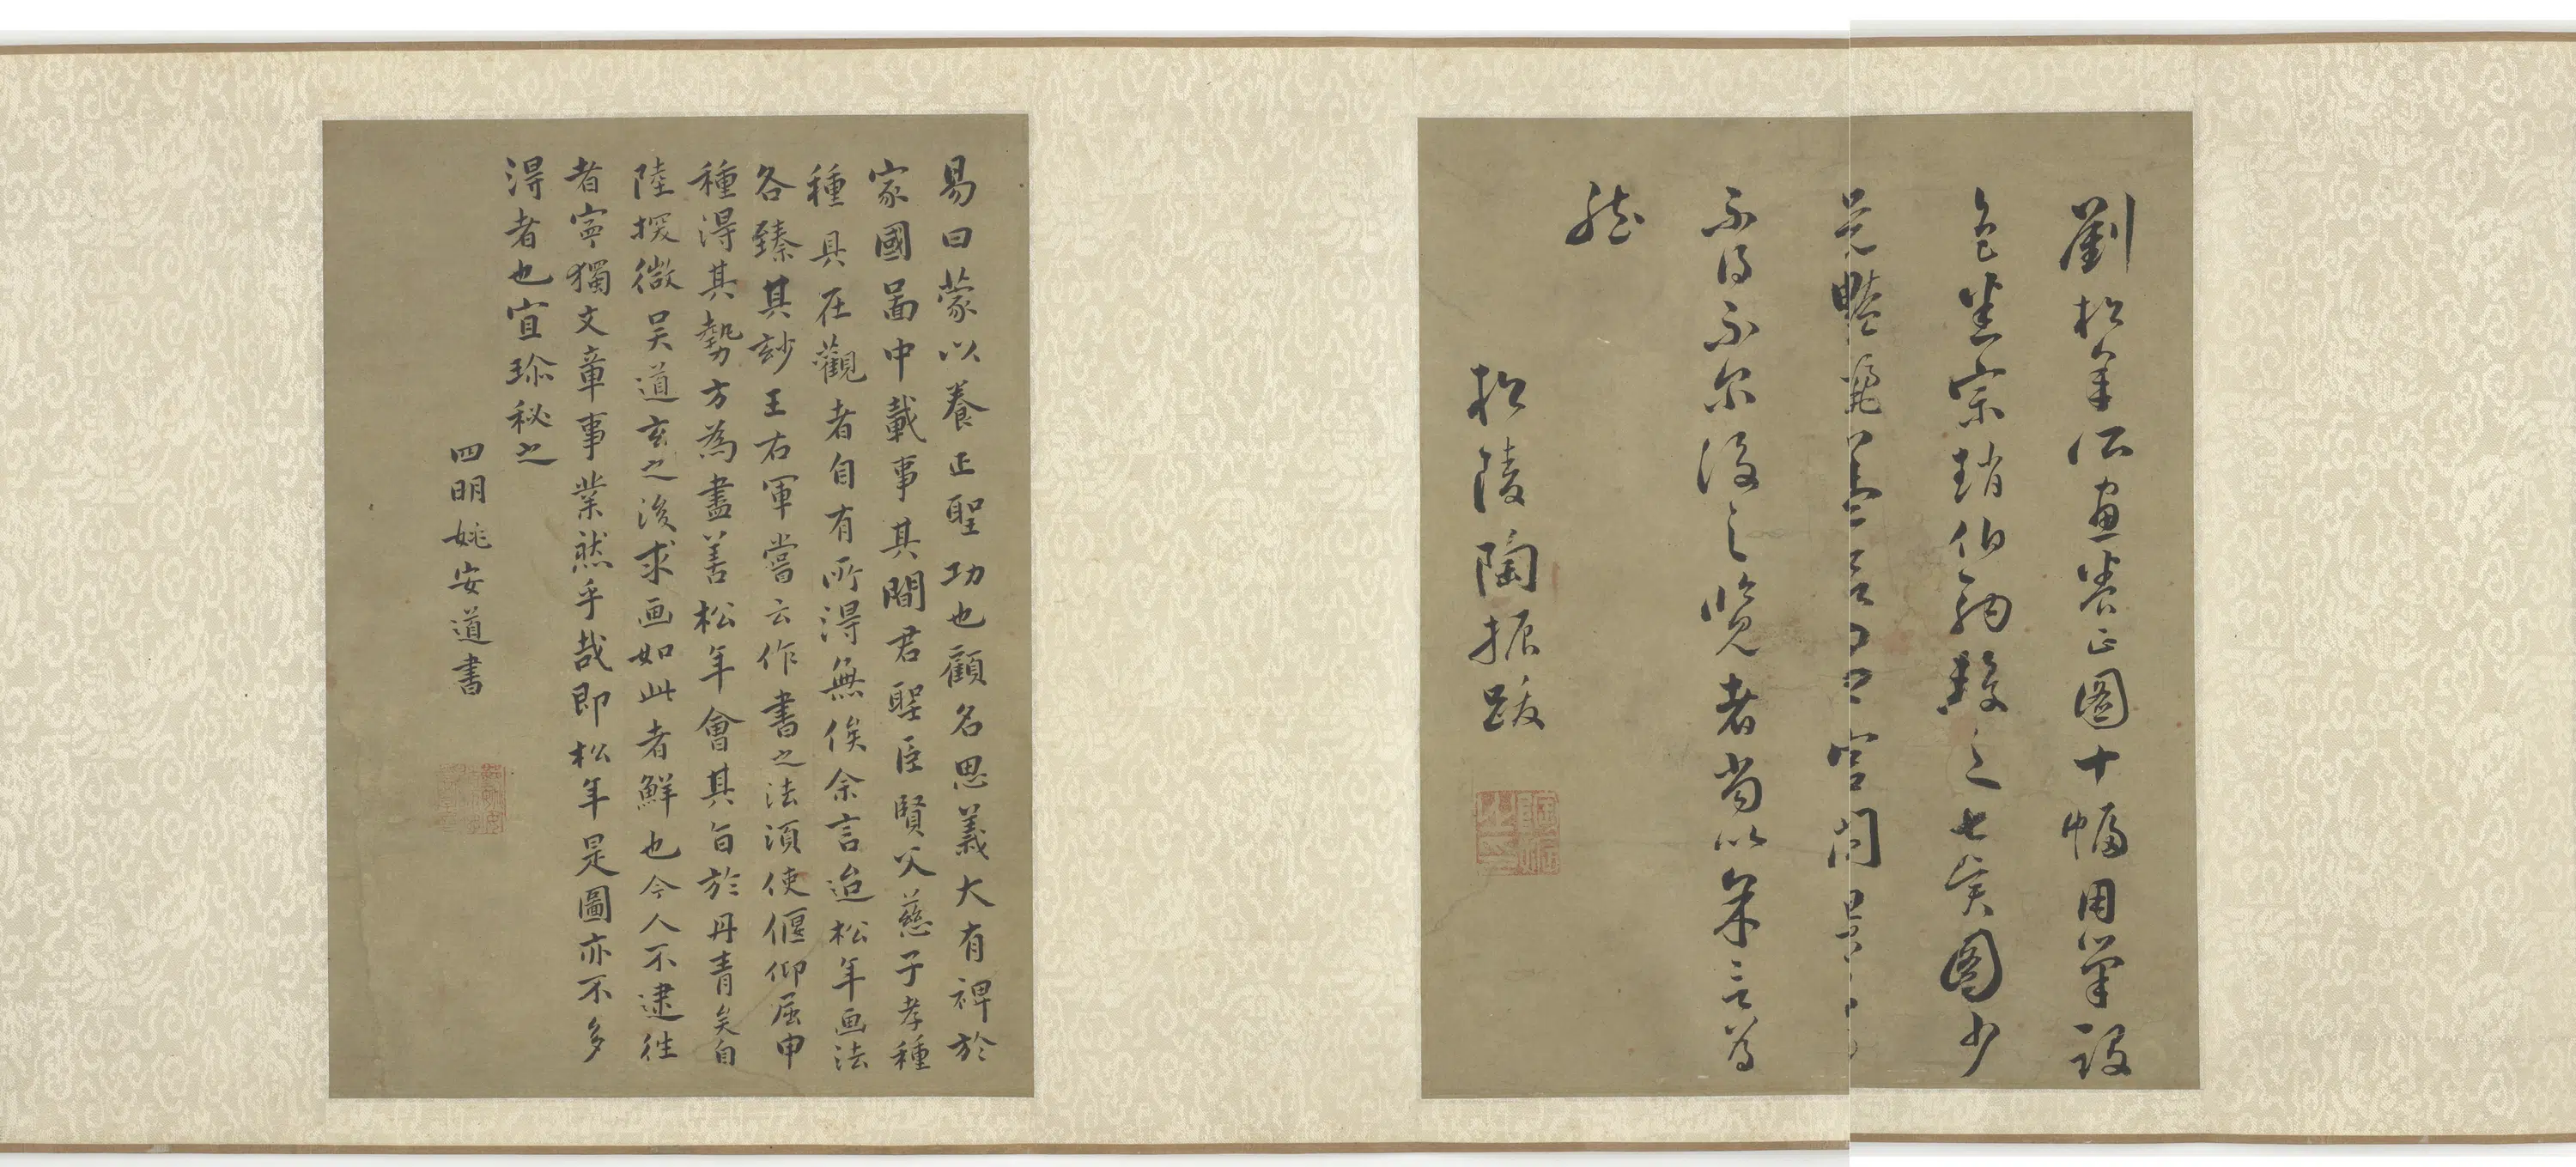 劉松年所畫養正圖十幅用筆設
色坐宗趙伯駒較之七矦圖少
覺豔麗蓋
不得不尔後之覽者當以余言為
然
松陵陶振跋
易曰蒙以養正聖功也顧名思義大有裨於
家國啚中載事其間君聖臣賢父慈子孝種
種具在觀者自有所得無俟余言迨松年画法
各臻其玅王右軍嘗云作書之法須使偃仰屈申
種得其勢方為盡善松年會其旨於丹青矣自
陸探微吴道玄之後求画如此者鮮也今人不逮徃
者寧獨文章事業然乎哉即松年是圖亦不多
得者也宜珎秘之
四明姚安道書